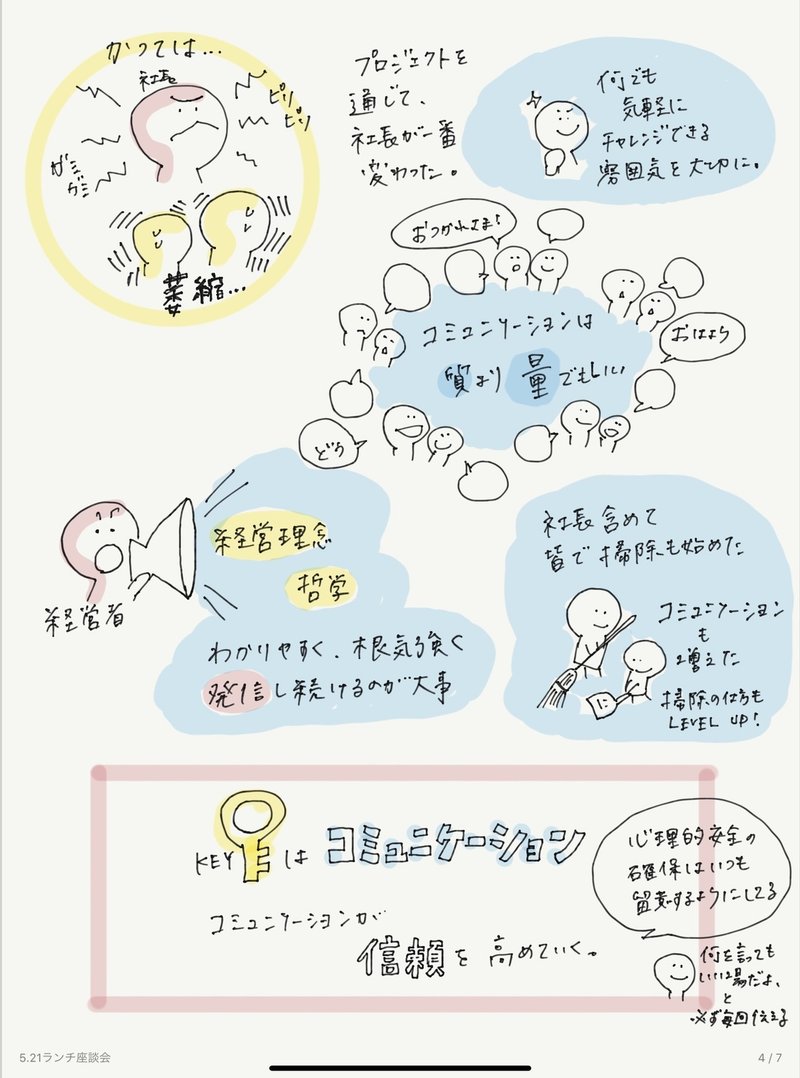 かつては…
社長
ピリ
ピリ
ガミ
ガミ
萎縮…
プロジェクトを
通じて、
社長が一番
変わった。
何でも
気軽に
チャレンジできる
雰囲気を大切に。
おつかれさま!
コミュニケーションは
質より量でもいい
おはよう
どう
経営者
経営理念
哲学
わかりやすく、根気強く
発信し続けるのが大事
社長含めて
皆で掃除も始めた
コミュニケーション
も
増えた
掃除の仕方も
LEVEL UP!
KEYはコミュニケーション
コミュニケーションが
信頼を高めていく。
心理的安全の
確保はいつも
留意するようにしてる
何を言っても
いい場だよ、
と
必ず毎回伝える
5.21ランチ座談会
4 / 7